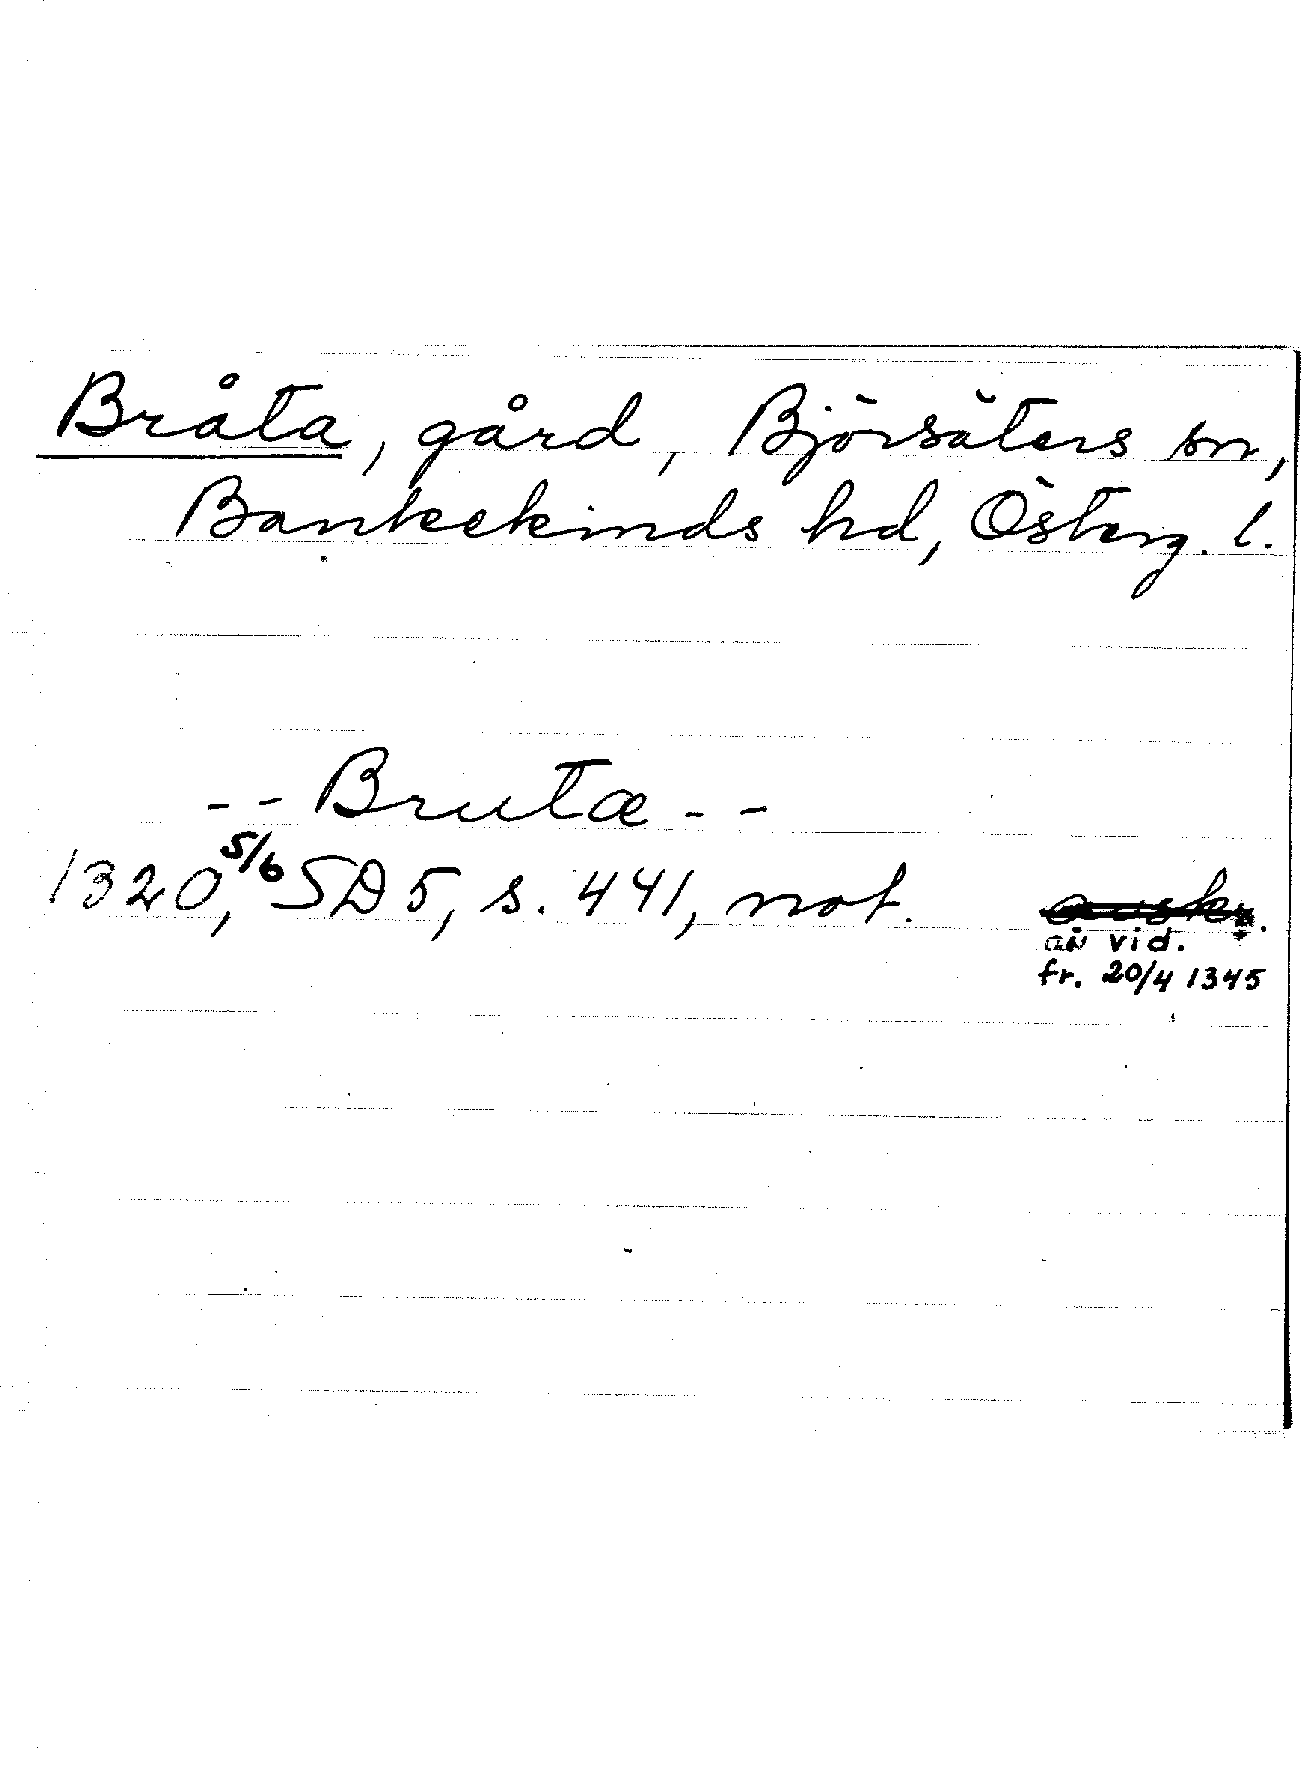 Bråta, gård, Björsäters sn,
Bankekinds hd, Österg. l.
-- Brutæ --
1320, 5/6 SD 5, s. 441, not. avskr.
av vid.
fr. 20/4 1345